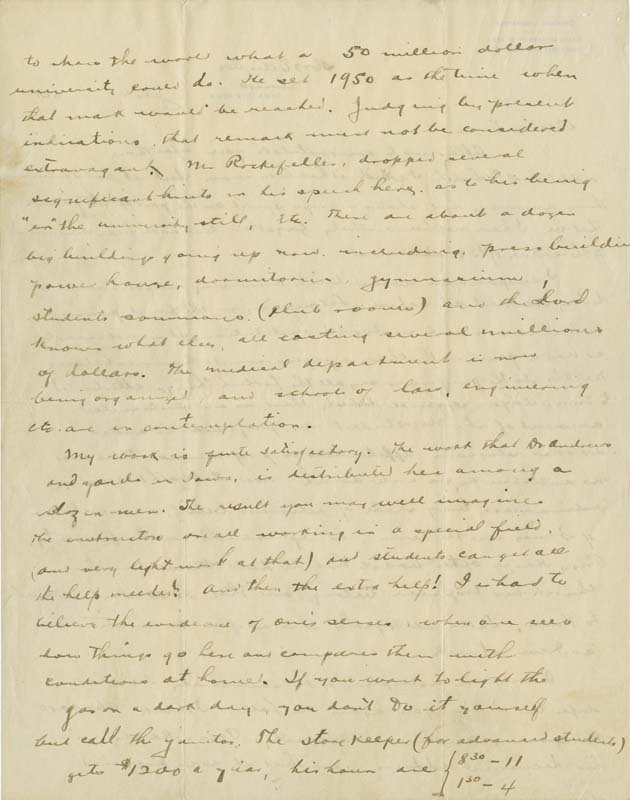 to show the world what a 50 million dollar
university could do. He set 1950 as the time when
that mark would be reached. Judging by present
indications that remark must not be considered
extravagant. Mr Rockefeller, dropped several
significant hints in his speech here, as to his being
"in" the university still, Etc. There are about a dozen
big buildings going up now including, press building
power house, dormitories, gymnasium,
students commons (club rooms) and the Lord
knows what else, all costing several millions
of dollars. The medical department is now
being organized, and schools of law, engineering
etc. are in contemplation.
My work is quite satisfactory. The work that Dr Andrews
and yards in Iowa, is distributed here among a
dozen men. The result you may well imagine.
The instructors are all working in a special field,
(and very light work at that) and students can get all
the help needed. And then the extra help! Is hard to
believe the evidence of one's senses when one sees
how things go here and compares them with
conditions at home. If you want to light the
gas on a dark day, you don't do it yourself
but call the janitor. The store keeper (for advanced students)
gets $1200 a year, his hours are { 8³⁰ - 11
1³⁰ - 4